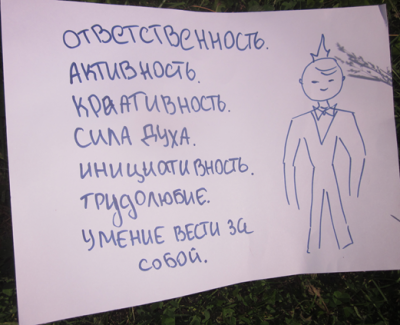 ОТВЕТСТВЕННОСТЬ.
АКТИВНОСТЬ.
КРЕАТИВНОСТЬ.
СИЛА ДУХА.
ИНИЦИАТИВНОСТЬ.
ТРУДОЛЮБИЕ.
УМЕНИЕ ВЕСТИ ЗА
СОБОЙ.